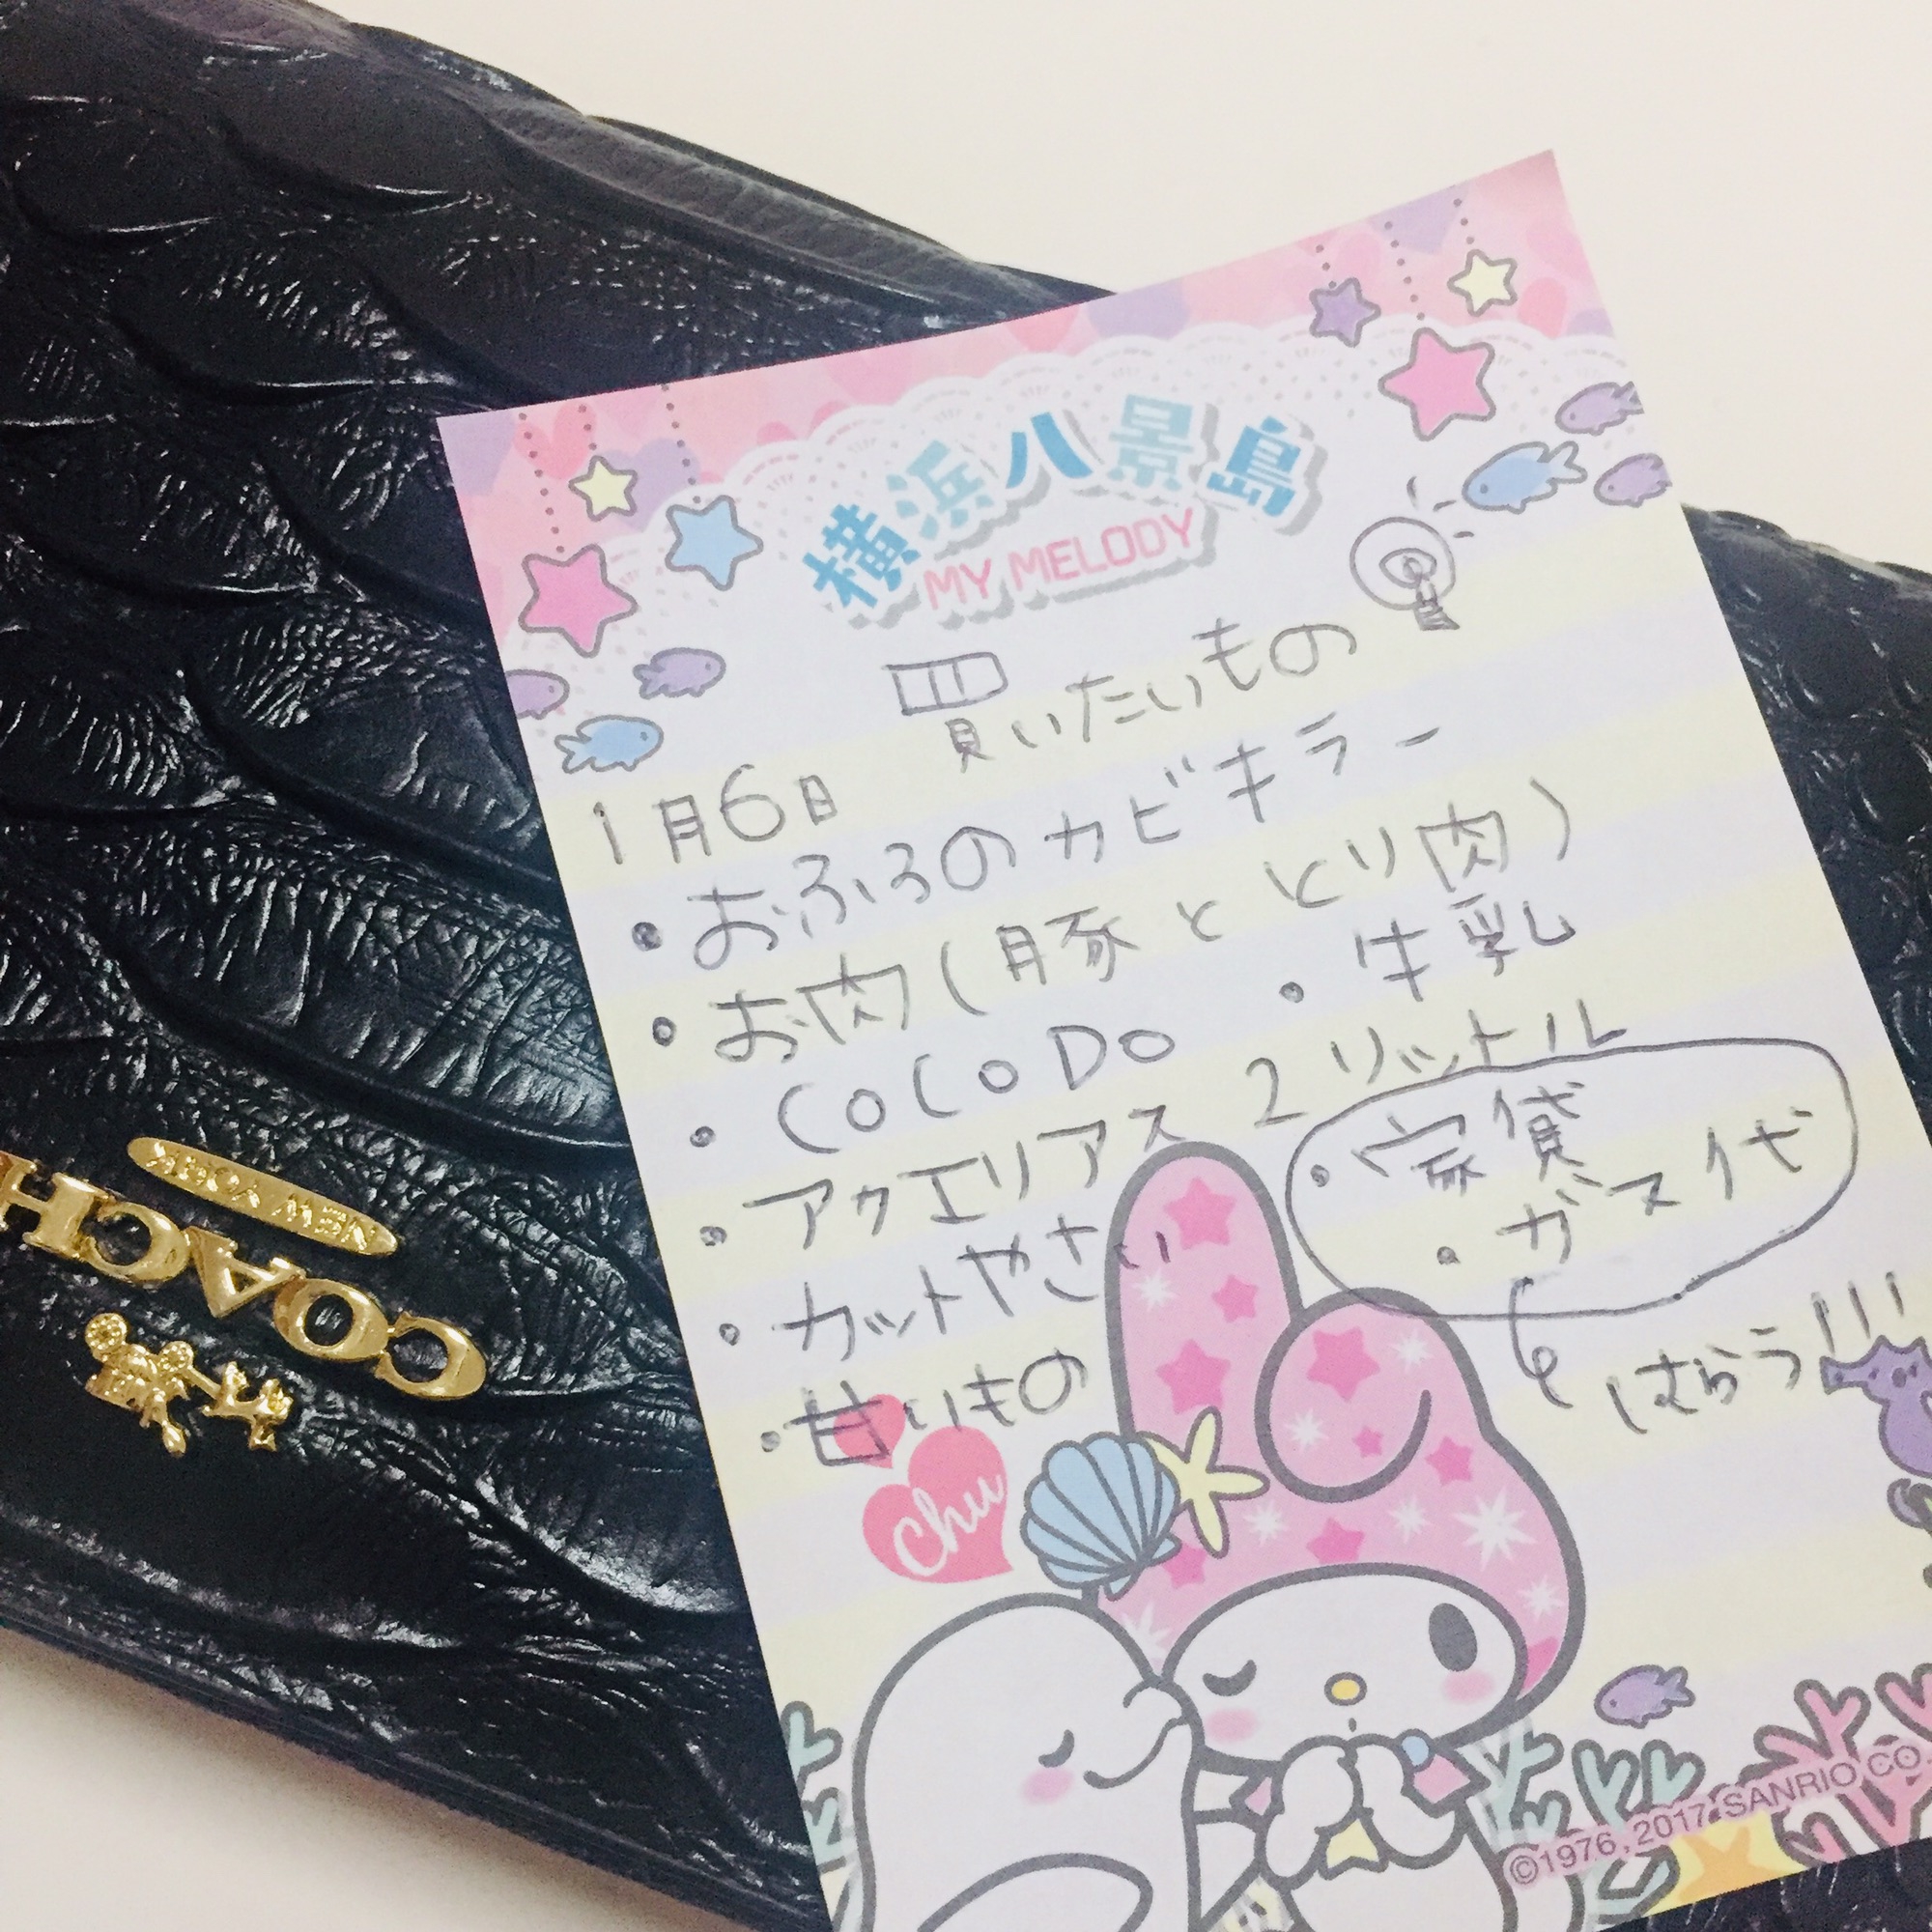 横浜八景島
MY MELODY
買いたいもの
1月6日
・おふろのカビキラー
・お肉(豚ととり肉)
・COCODO ・牛乳
・アクエリアス 2リットル
・カットやさい
・甘いもの
・家賃
・ガス代
はらう!!!
Chu
©1976,2017 SANRIO CO.
NEW YORK
COACH